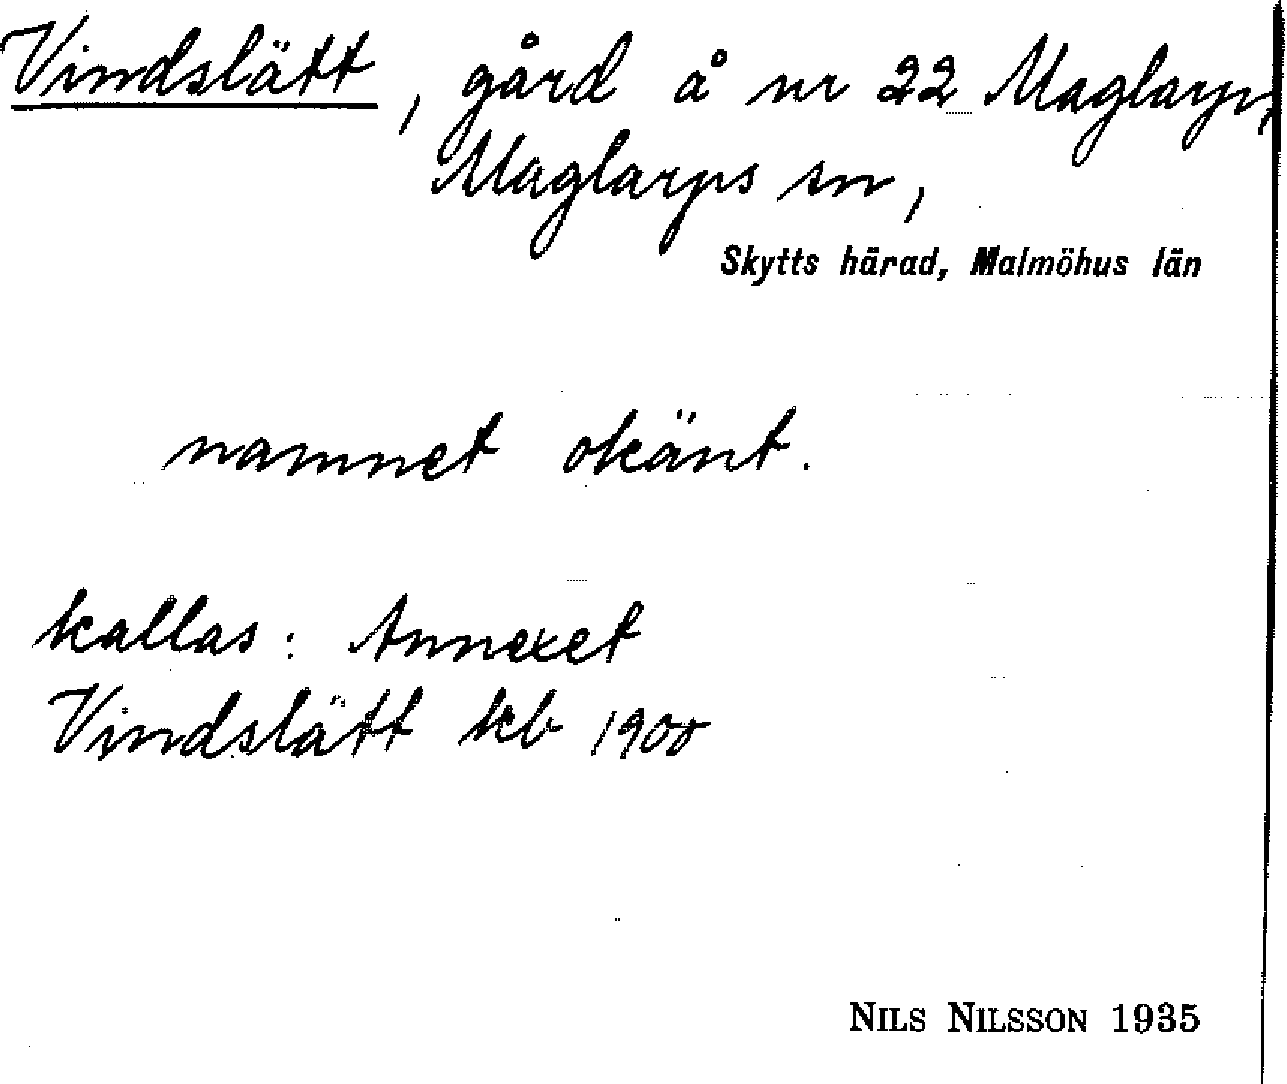 Vindslätt, gård å nr 22 Maglarp,
Maglarps sn,
Skytts härad, Malmöhus län
namnet okänt.
kallas: Annexet
Vindslätt kb 1900
NILS NILSSON 1935